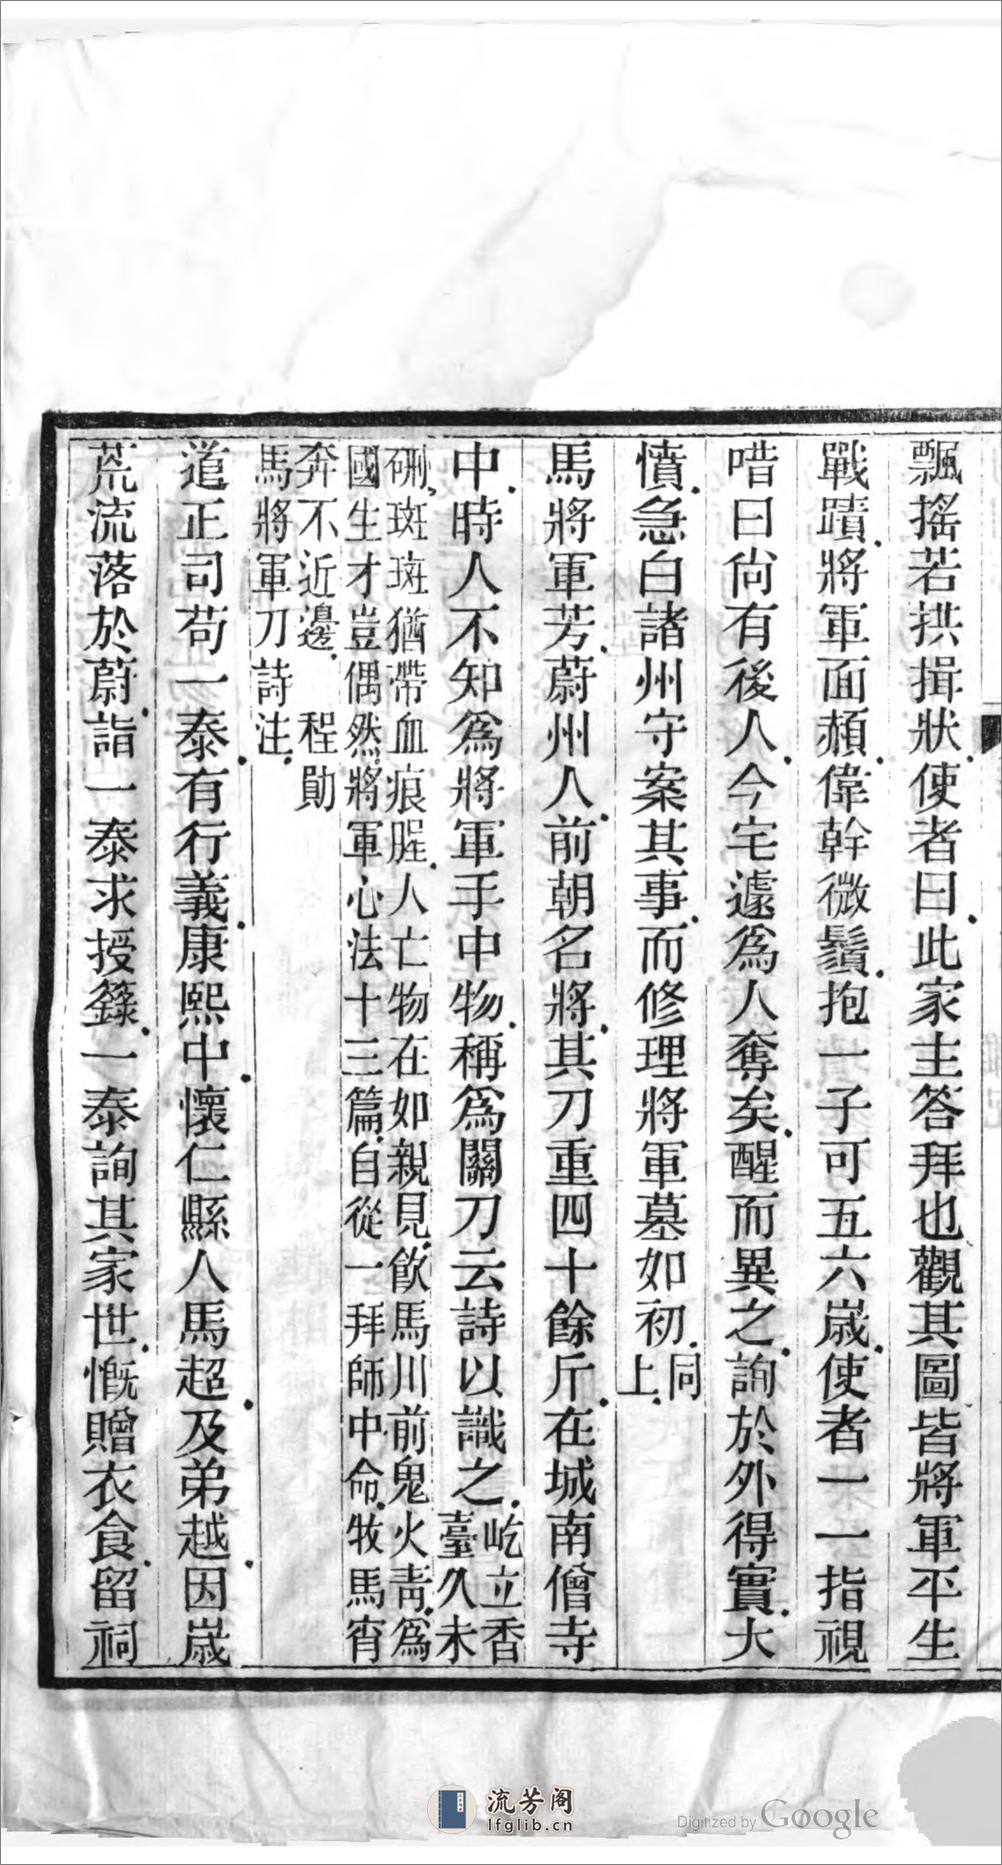 飄搖若拱揖狀使者曰此家主答拜也觀其圖皆將軍平生
戰蹟將軍面頳偉幹微鬚抱一子可五六歲使者一一指視
唶曰尙有後人今宅遽爲人奪矣醒而異之詢於外得實大
憤急白諸州守案其事而修理將軍墓如初同
上
馬將軍芳蔚州人前朝名將其刀重四十餘斤在城南僧寺
中時人不知爲將軍手中物稱爲關刀云詩以識之屹立香
臺久未
硎斑斑猶帶血痕腥人亡物在如親見飮馬川前鬼火靑爲
國生才豈偶然將軍心法十三篇自從一拜師中命牧馬宵
奔不近邊 程勛
馬將軍刀詩注
道正司苟一泰有行義康熙中懷仁縣人馬超及弟越因歲
荒流落於蔚詣一泰求授籙一泰詢其家世慨贈衣食留祠
流芳阁
lfglib.cn
Digitized by Google